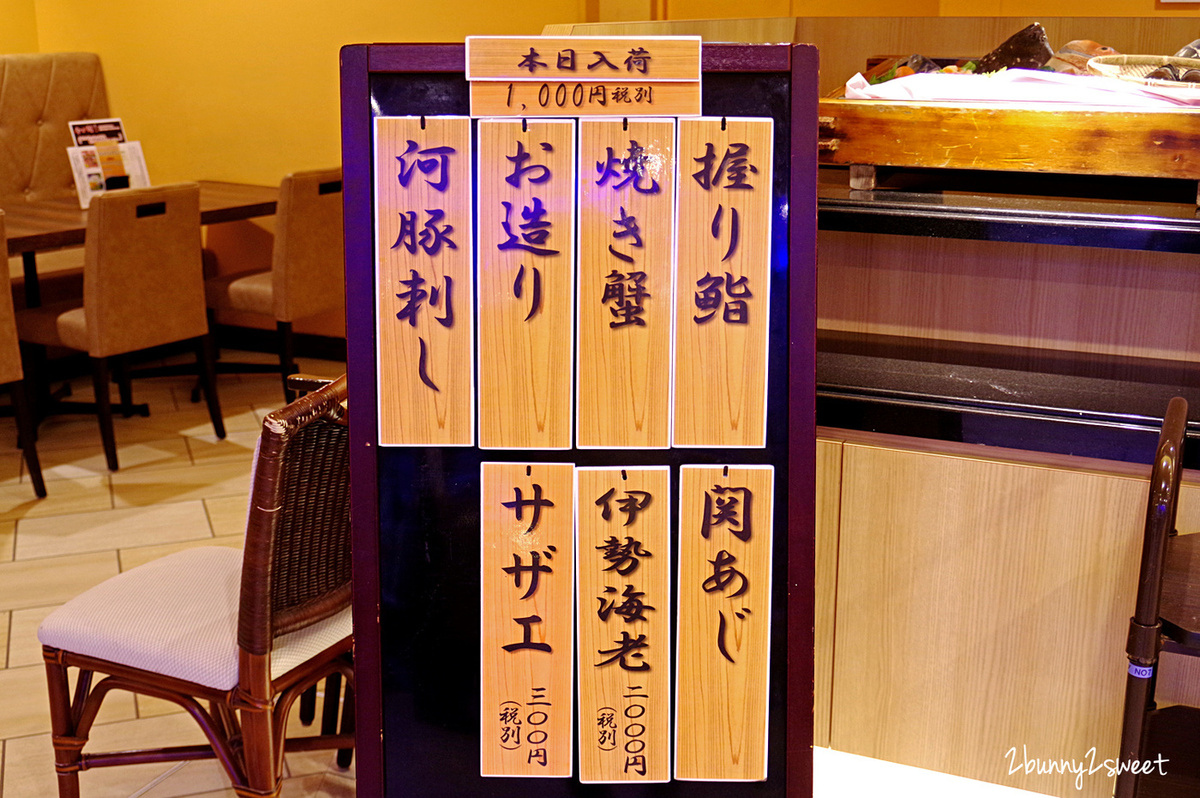 本日入荷
1,000円税別
握り鮨
焼き蟹
お造り
河豚刺し
関あじ
伊勢海老
二〇〇〇円
(税別)
サザエ
三〇〇円
(税別)
NOT
2bunny2sweet